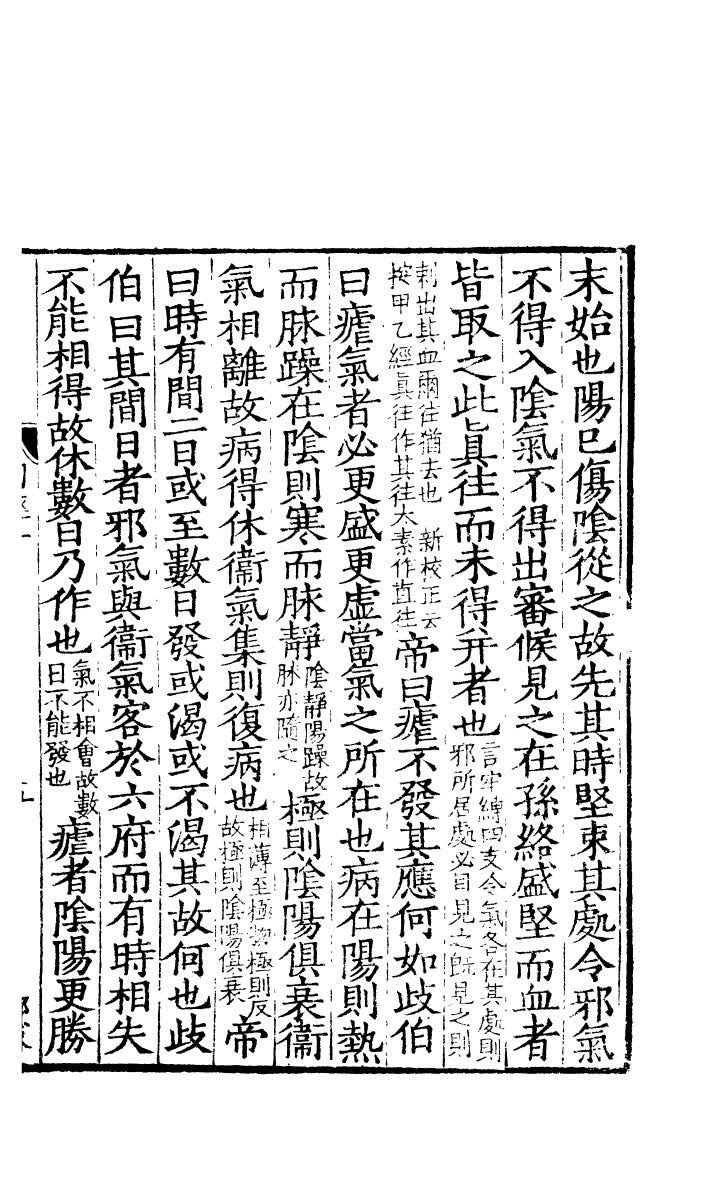 末始也陽已傷陰從之故先其時堅束其處令邪氣
不得入陰氣不得出審候見之在孫絡盛堅而血者
皆取之此眞往而未得并者也言牢縛四支令氣各在其處則邪所居處必自見之旣見之則
刺出其血爾往猶去也　新校正云按甲乙經眞往作其往太素作直往帝曰瘧不發其應何如歧伯
曰瘧氣者必更盛更虛當氣之所在也病在陽則熱
而脉躁在陰則寒而脉靜陰靜陽躁故脉亦隨之極則陰陽俱衰衞
氣相離故病得休衞氣集則復病也相薄至極物極則反故極則陰陽俱衰帝
曰時有間二日或至數日發或渴或不渴其故何也歧
伯曰其間日者邪氣與衞氣客於六府而有時相失
不能相得故休數日乃作也氣不相會故數日不能發也瘧者陰陽更勝